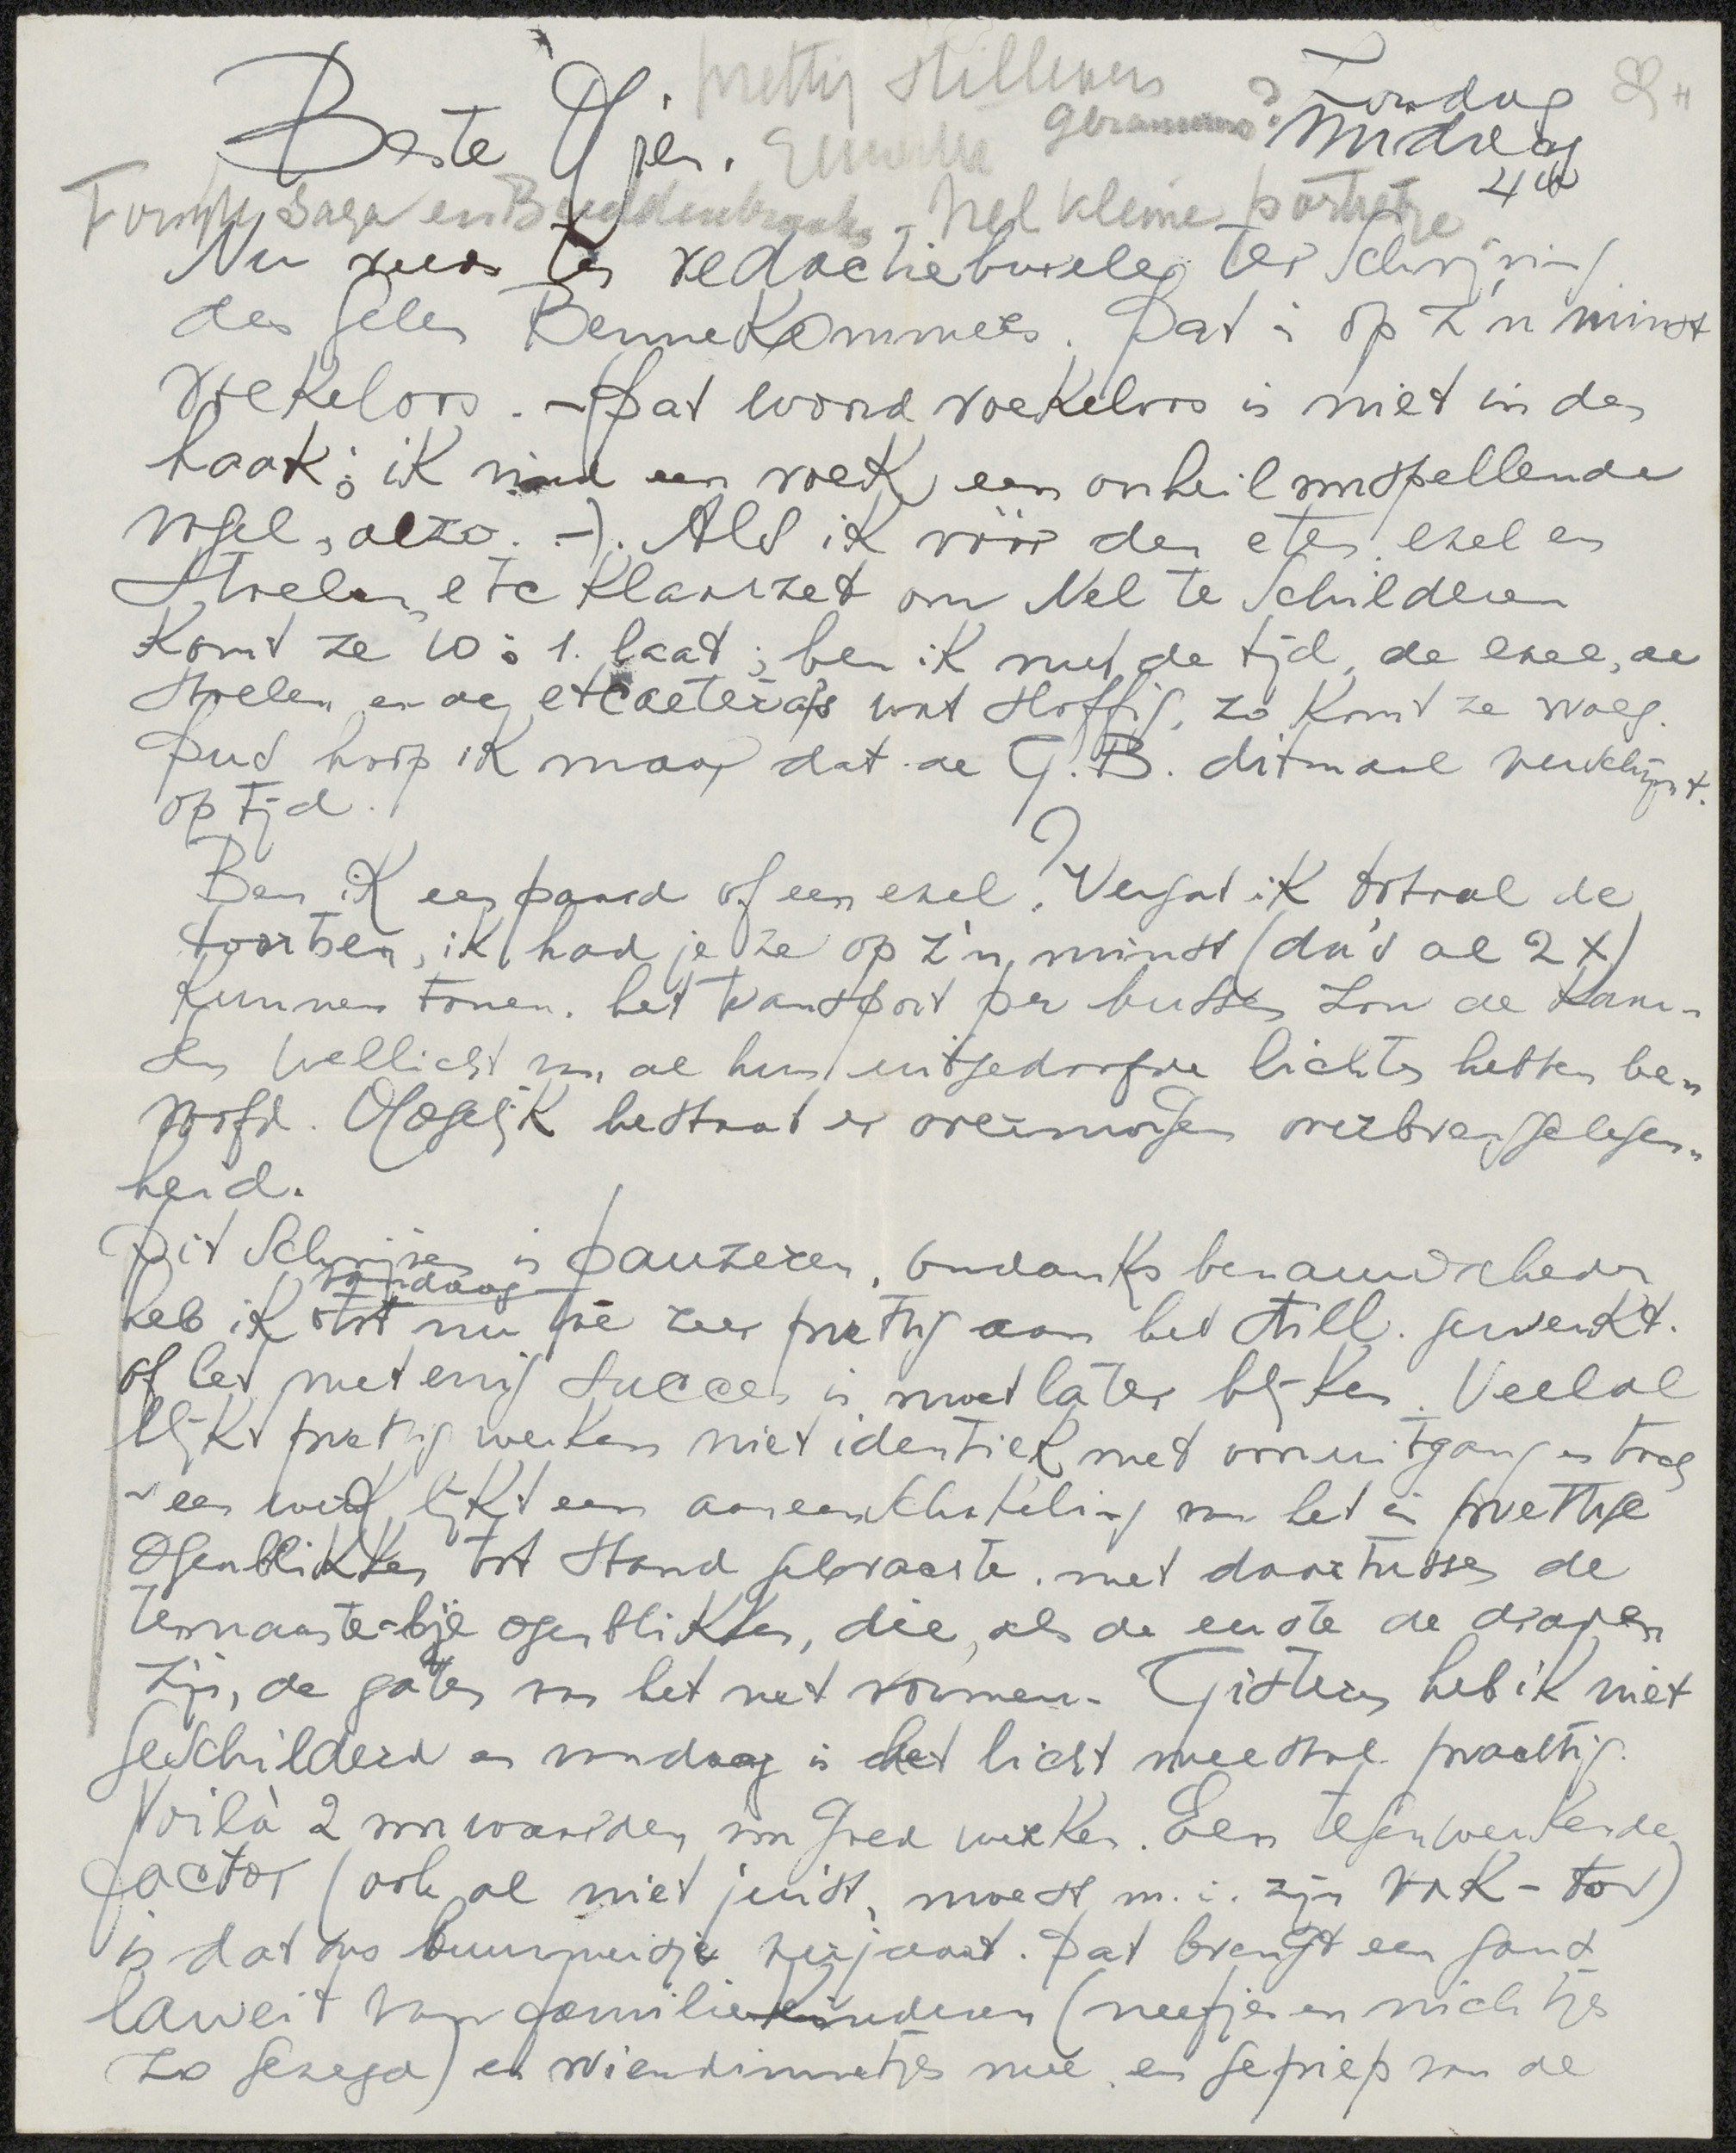 prettig stillevens
Zondag
Beste Ojen.
geraniums?
Middag
4 u
Forsyte Saga en Buddenbrooks. Nel kleine portretje
Nu reeds ten redactieburele ter schrijving
der Gele Bennekommers. Dat is op z'n minst
roekeloos. - (Dat woord roekeloos is niet in den
haak; ik vind een roek, een onheilvoorspellende
vogel, alzo. -). Als ik vóór den eten ezel en
stoelen, etc klaarzet om Nel te schilderen
komt ze 10 : 1. laat; ben ik met de tijd, de ezel, de
stoelen en de etcaetera's wat sloffig, zo komt ze vroeg.
Dus hoop ik maar dat de G.B. ditmaal verschijnt
op tijd.
Ben ik een paard of een ezel? Vergat ik totaal de
toortsen, ik had je ze op z'n minst (da's al 2 x)
kunnen tonen. het transport per bussen zou de
wellicht van al hun uitgedoofde lichten hebben be"
roofd. Mogelijk bestaat er overmorgen overbrenggelegen"
heid.
Dit schrijven is pauzeren. Ondanks benauwdheden
vandaag
heb ik tot nu toe zeer prettig aan het still. gewerkt.
of het met enig succes is moet later blijken. Veelal
blijkt prettig werken niet identiek met vooruitgang en toch
een werk lijkt een aaneenschakeling van het in prettige
ogenblikken tot stand gebrachte. met daartussen de
ternauste-bije ogenblikken, die, als de eerste de draden
zijn, de gaten van het net vormen. Gisteren heb ik niet
geschilderd en vandaag is het licht meestal prachtig.
Voilà 2 voorwaarden voor goed werken. Een tegenwerkende
factor (ook al niet juist, moest m. i. zijn vak-tor)
is dat ons buurmeisje verjaart. Dat brengt een hand
laweit van familiekinderen (neefjes en nichtjes
zo gezegd) en vriendinnetjes mee, en gepiep van de